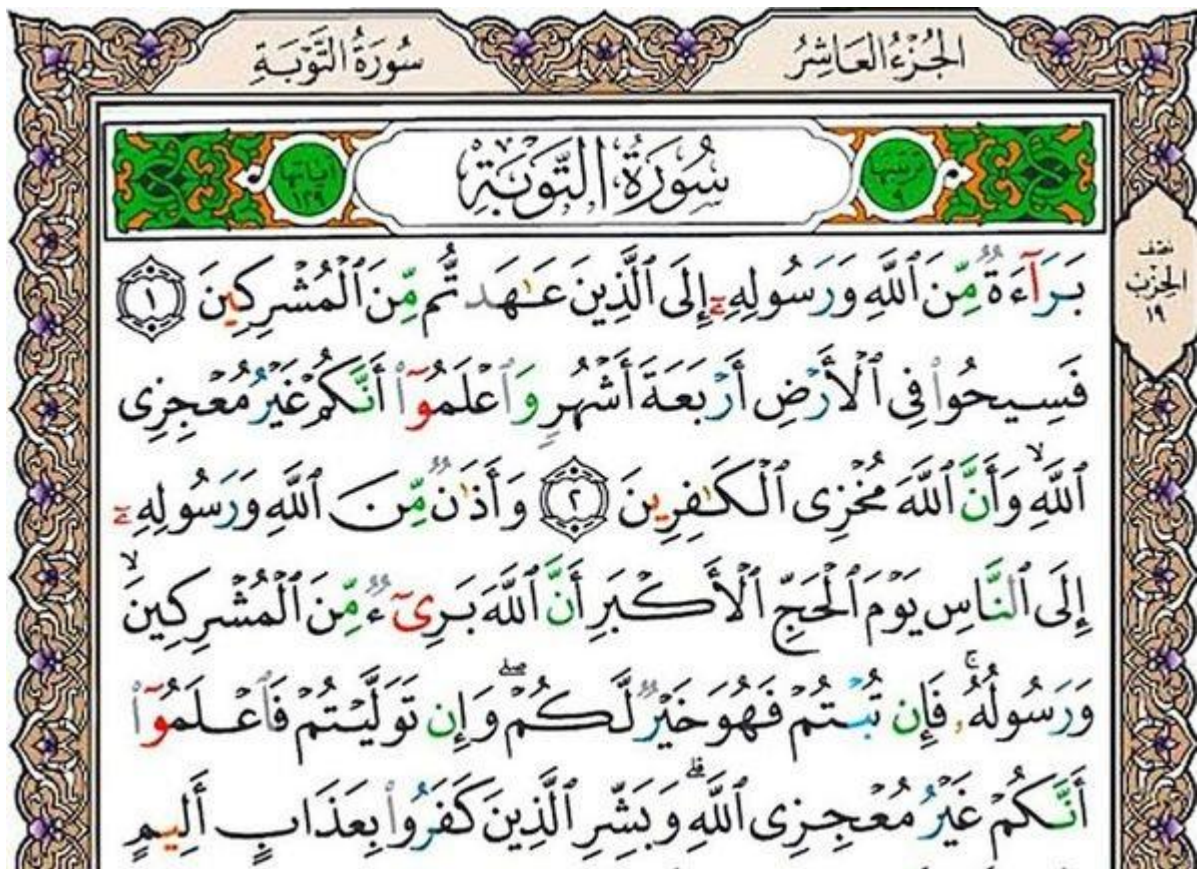 سُورَةُ التَّوْبَةِ
الجُزْءُ العَاشِرُ
ترتيبها ٩
سُورَةُ التَّوْبَةِ
آياتها ١٢٩
نصف
الحِزْب
١٩
بَرَآءَةٌ مِّنَ ٱللَّهِ وَرَسُولِهِۦٓ إِلَى ٱلَّذِينَ عَـٰهَدتُّم مِّنَ ٱلْمُشْرِكِينَ ١
فَسِيحُوا۟ فِى ٱلْأَرْضِ أَرْبَعَةَ أَشْهُرٍ وَٱعْلَمُوٓا۟ أَنَّكُمْ غَيْرُ مُعْجِزِى
ٱللَّهِ ۙ وَأَنَّ ٱللَّهَ مُخْزِى ٱلْكَـٰفِرِينَ ٢ وَأَذَٰنٌ مِّنَ ٱللَّهِ وَرَسُولِهِۦٓ
إِلَى ٱلنَّاسِ يَوْمَ ٱلْحَجِّ ٱلْأَكْبَرِ أَنَّ ٱللَّهَ بَرِىٓءٌ مِّنَ ٱلْمُشْرِكِينَ ۙ
وَرَسُولُهُۥ ۚ فَإِن تُبْتُمْ فَهُوَ خَيْرٌ لَّكُمْ ۖ وَإِن تَوَلَّيْتُمْ فَٱعْلَمُوٓا۟
أَنَّكُمْ غَيْرُ مُعْجِزِى ٱللَّهِ ۗ وَبَشِّرِ ٱلَّذِينَ كَفَرُوا۟ بِعَذَابٍ أَلِيمٍ